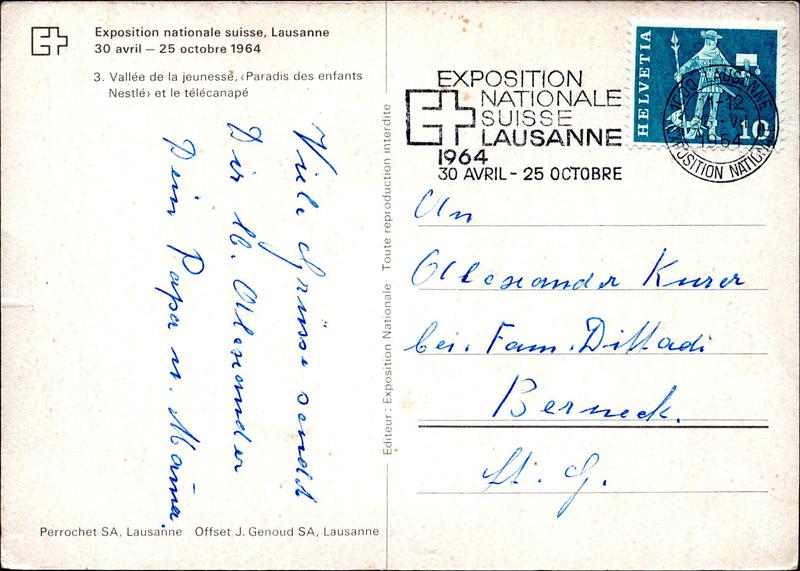 Exposition nationale suisse, Lausanne
30 avril — 25 octobre 1964
3. Vallée de la jeunesse, ‹Paradis des enfants
Nestlé› et le télécanapé
Viele Grüsse sendet
Dir lb. Alexander
Dein Papa u. Mama.
Perrochet SA, Lausanne Offset J. Genoud SA, Lausanne
Editeur: Exposition Nationale Toute reproduction interdite
EXPOSITION
NATIONALE
SUISSE
LAUSANNE
1964
30 AVRIL - 25 OCTOBRE
HELVETIA
10
LAUSANNE
1964
EXPOSITION NATIONALE
An
Alexander Kurer
bei. Fam. Dittadi
Berneck.
St. G.